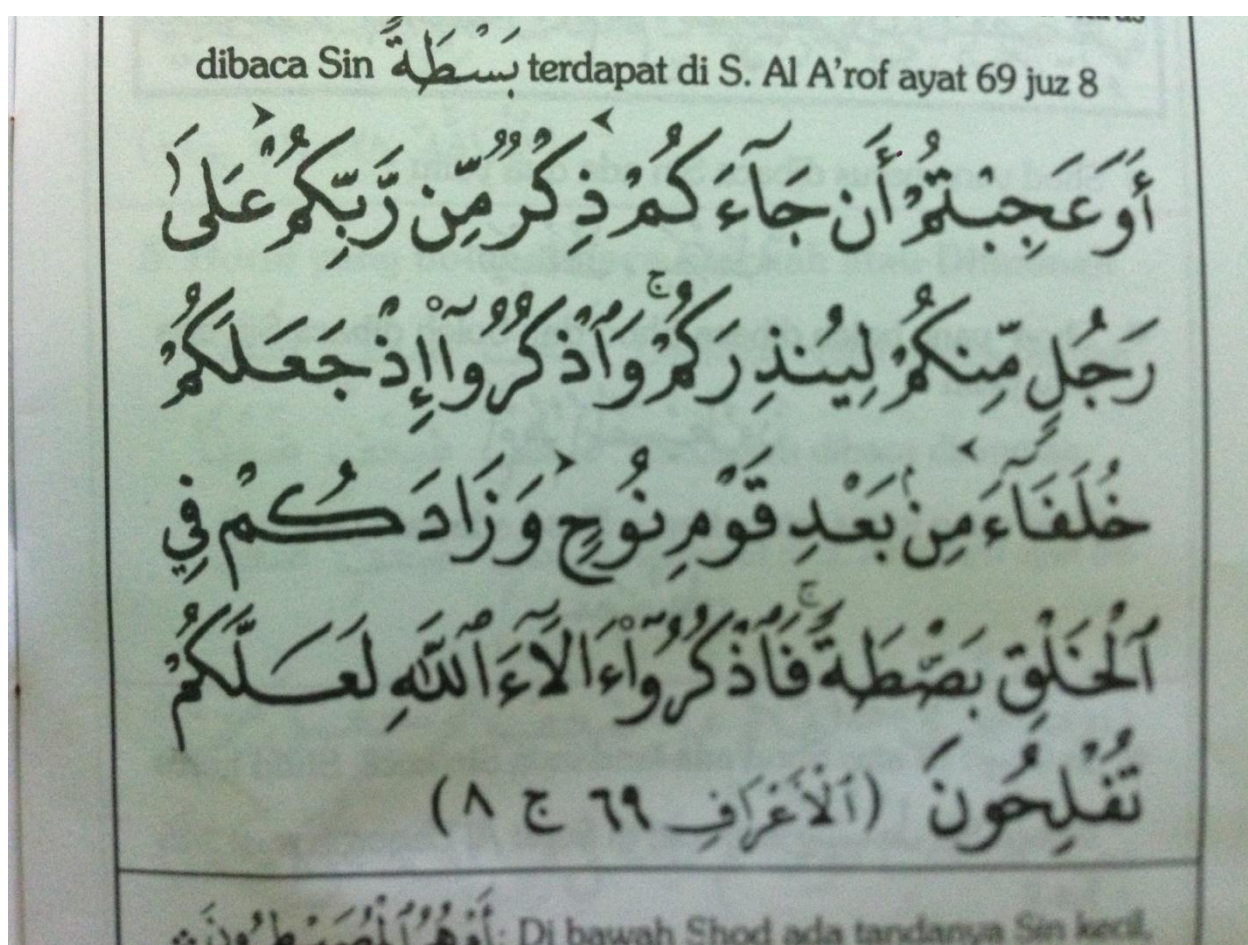 dibaca Sin بَسْطَةً terdapat di S. Al A'rof ayat 69 juz 8
أَوَعَجِبْتُمْ أَن جَآءَكُمْ ذِكْرٌ مِّن رَّبِّكُمْ عَلَىٰ
رَجُلٍ مِّنكُمْ لِيُنذِرَكُمْ ۚ وَٱذْكُرُوٓا۟ إِذْ جَعَلَكُمْ
خُلَفَآءَ مِنۢ بَعْدِ قَوْمِ نُوحٍ وَزَادَكُمْ فِي
ٱلْخَلْقِ بَصْۜطَةً ۚ فَٱذْكُرُوٓا۟ ءَالَآءَ ٱللَّهِ لَعَلَّكُمْ
تُفْلِحُونَ (ٱلْأَعْرَافِ ٦٩ ج ٨)
: Di bawah Shod ada tandanya Sin kecil.